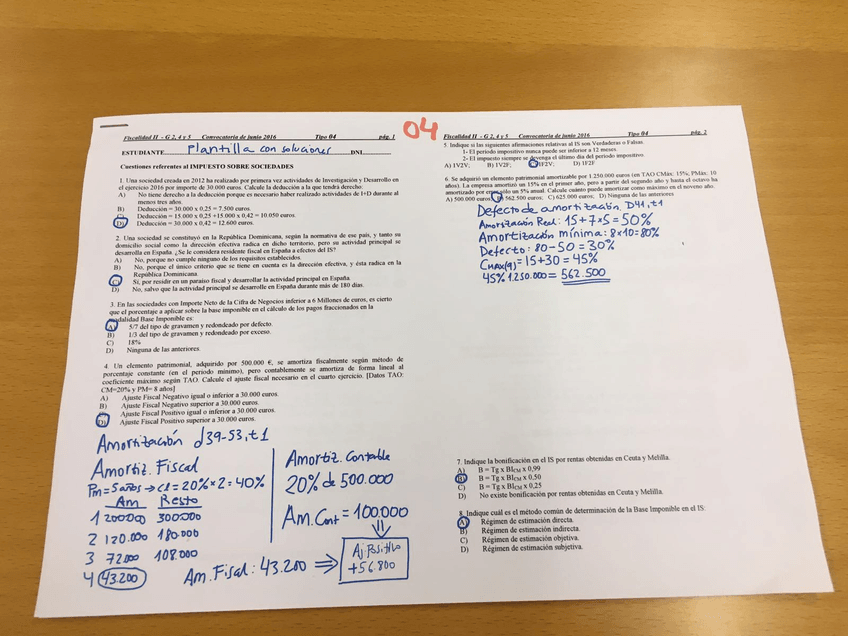 Fiscalidad II - G 2, 4 y 5 Convocatoria de junio 2016 Tipo 04 pág. 1
04
ESTUDIANTE Plantilla con soluciones DNI
Cuestiones referentes al IMPUESTO SOBRE SOCIEDADES
1. Una sociedad creada en 2012 ha realizado por primera vez actividades de Investigación y Desarrollo en
el ejercicio 2016 por importe de 30.000 euros. Calcule la deducción a la que tendrá derecho:
A) No tiene derecho a la deducción porque es necesario haber realizado actividades de I+D durante al
menos tres años.
B) Deducción = 30.000 x 0,25 = 7.500 euros.
C) Deducción = 15.000 x 0,25 +15.000 x 0,42 = 10.050 euros.
D) Deducción = 30.000 x 0,42 = 12.600 euros.
2. Una sociedad se constituyó en la República Dominicana, según la normativa de ese país, y tanto su
domicilio social como la dirección efectiva radica en dicho territorio, pero su actividad principal se
desarrolla en España. ¿Se le considera residente fiscal en España a efectos del IS?
A) No, porque no cumple ninguno de los requisitos establecidos.
B) No, porque el único criterio que se tiene en cuenta es la dirección efectiva, y ésta radica en la
República Dominicana.
C) Sí, por residir en un paraíso fiscal y desarrollar la actividad principal en España.
D) No, salvo que la actividad principal se desarrolle en España durante más de 180 días.
3. En las sociedades con Importe Neto de la Cifra de Negocios inferior a 6 Millones de euros, es cierto
que el porcentaje a aplicar sobre la base imponible en el cálculo de los pagos fraccionados en la
modalidad Base Imponible es:
A) 5/7 del tipo de gravamen y redondeado por defecto.
B) 1/3 del tipo de gravamen y redondeado por exceso.
C) 18%
D) Ninguna de las anteriores
4. Un elemento patrimonial, adquirido por 500.000 €, se amortiza fiscalmente según método de
porcentaje constante (en el periodo mínimo), pero contablemente se amortiza de forma lineal al
coeficiente máximo según TAO. Calcule el ajuste fiscal necesario en el cuarto ejercicio. [Datos TAO:
CM=20% y PM= 8 años]
A) Ajuste Fiscal Negativo igual o inferior a 30.000 euros.
B) Ajuste Fiscal Negativo superior a 30.000 euros.
C) Ajuste Fiscal Positivo igual o inferior a 30.000 euros.
D) Ajuste Fiscal Positivo superior a 30.000 euros.
Amortización d39-53,t1
Amortiz. Fiscal
Pm=5años→Cl=20%×2=40%
Am Resto
1 200.000 300.000
2 120.000 180.000
3 72.000 108.000
4 43.200
Amortiz. Contable
20% de 500.000
Am.Cont = 100.000
Am.Fiscal: 43.200 ⇒
Aj.Positivo
+56.800
Fiscalidad II - G 2, 4 y 5 Convocatoria de junio 2016 Tipo 04 pág. 2
5. Indique si las siguientes afirmaciones relativas al IS son Verdaderas o Falsas.
1- El período impositivo nunca puede ser inferior a 12 meses.
2- El impuesto siempre se devenga el último día del período impositivo.
A) 1V2V; B) 1V2F; C) 1F2V; D) 1F2F
6. Se adquirió un elemento patrimonial amortizable por 1.250.000 euros (en TAO CMáx: 15%; PMáx: 10
años). La empresa amortizó un 15% en el primer año, pero a partir del segundo año y hasta el octavo ha
amortizado por error sólo un 5% anual. Calcule cuánto puede amortizar como máximo en el noveno año.
A) 500.000 euros; B) 562.500 euros; C) 625.000 euros; D) Ninguna de las anteriores
Defecto de amortización D41,t1
Amortización Real: 15+7×5=50%
Amortización mínima: 8×10=80%
Defecto: 80-50=30%
CMAX(9)=15+30=45%
45% 1.250.000= 562.500
7. Indique la bonificación en el IS por rentas obtenidas en Ceuta y Melilla.
A) B = Tg x BICM x 0,99
B) B = Tg x BICM x 0,50
C) B = Tg x BICM x 0,25
D) No existe bonificación por rentas obtenidas en Ceuta y Melilla.
8. Indique cuál es el método común de determinación de la Base Imponible en el IS:
A) Régimen de estimación directa.
B) Régimen de estimación indirecta.
C) Régimen de estimación objetiva.
D) Régimen de estimación subjetiva.